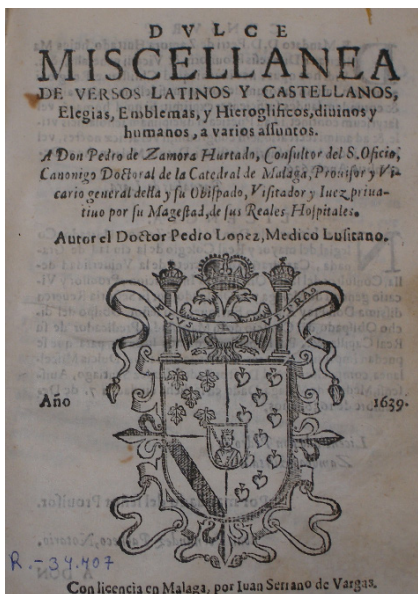 DVLCE
MISCELLANEA
DE VERSOS LATINOS Y CASTELLANOS,
Elegias, Emblemas, y Hieroglificos, diuinos y
humanos, a varios assuntos.
A Don Pedro de Zamora Hurtado, Consultor del S. Oficio,
Canonigo Doctoral de la Catedral de Malaga, Prouisor y Vi-
cario general della y su Obispado, Visitador y Iuez priua-
tiuo por su Magestad, de sus Reales Hospitales.
Autor el Doctor Pedro Lopez, Medico Lusitano.
PLVS VLTRA
Año 1639.
R.-34.407
Con licencia en Malaga, por Iuan Serrano de Vargas.